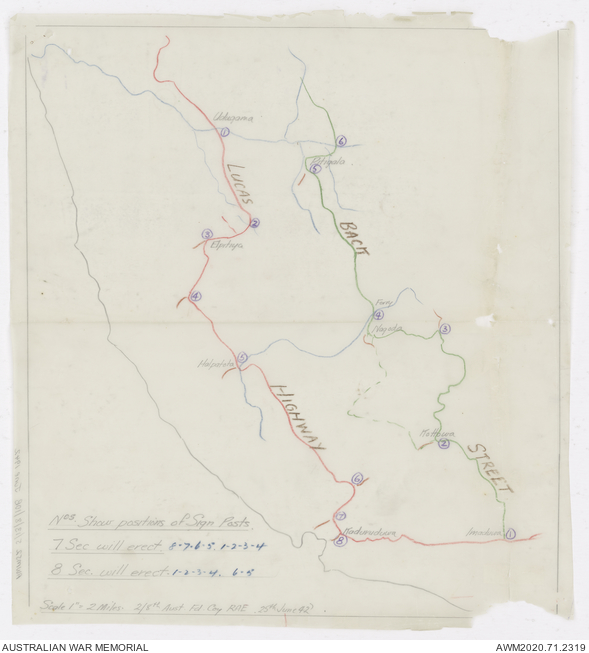 Udugama
①
⑥
⑤
LUCAS
②
③
Elpitiya
BACK
④
Ferry
④
Nagoda
③
⑤
HIGHWAY
②
STREET
⑥
⑦
⑧
Imaduwa
①
Nos. Show positions of Sign Posts.
7. Sec will erect. 8-7-6-5 1-2-3-4
8. Sec. will erect. 1-2-3-4. 6-5
Scale 1" = 2 Miles. 2/8th Aust. Fd. Coy RAE. 25th June 42.
AUSTRALIAN WAR MEMORIAL
AWM2020.71.2319